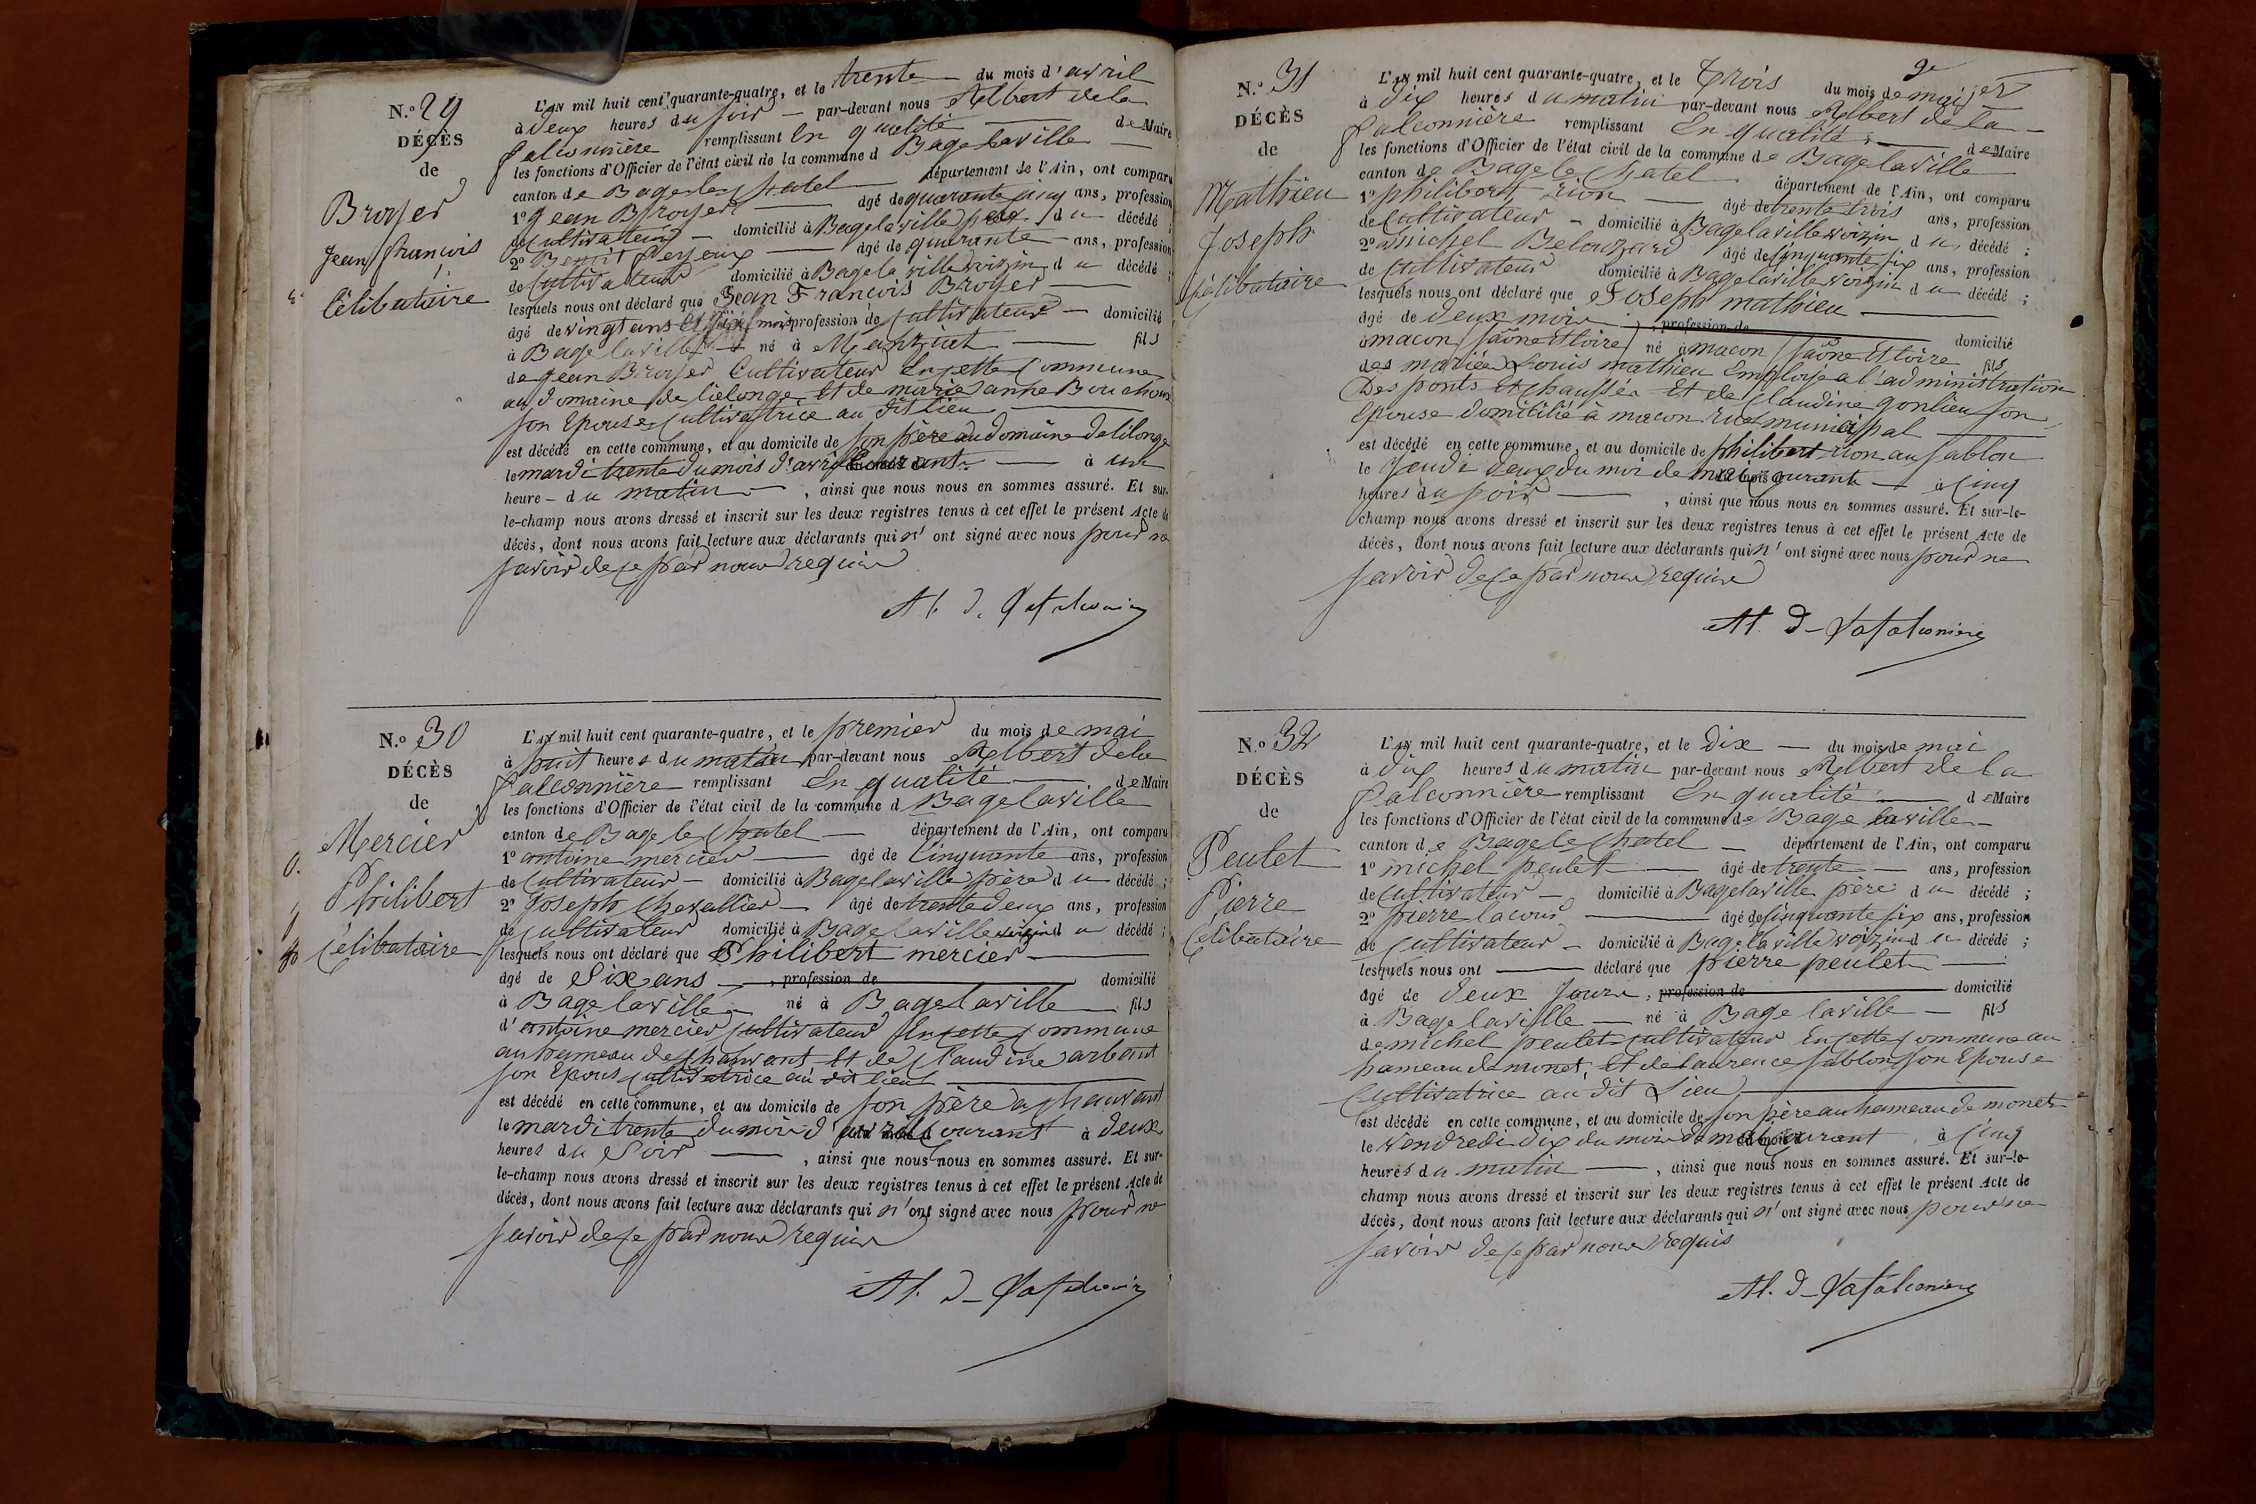 N.º 29
DÉCÈS
de
Broyer
Jean françois
Célibataire
L'AN mil huit cent quarante-quatre, et le trente du mois d'avril
à deux heures du soir par-devant nous Albert dela
falconnière remplissant En qualité de Maire
les fonctions d'Officier de l'état civil de la commune d Bagelaville
canton de Bage le Chatel département de l'Ain, ont comparu
1º Jean Broyer âgé de quarante cinq ans, profession
de Cultivateur domicilié à Bagelaville père du décédé ;
2º Benoit âgé de quarante ans, profession
de Cultivateur domicilié à Bagelaville voizin du décédé ;
lesquels nous ont déclaré que Jean François Broyer
âgé de vingt ans Et six mois profession de Cultivateur domicilié
à Bagelaville né à Manziat fils
de Jean Broyer Cultivateur En cette Commune
au domaine de lielonge Et de marie anne Bouchoux
son Epouse Cultivatrice au dit lieu
est décédé en cette commune, et au domicile de son père au domaine delilonge
le mardi trente du mois d'avril Courant à une
heure du matin , ainsi que nous nous en sommes assuré. Et sur-
le-champ nous avons dressé et inscrit sur les deux registres tenus à cet effet le présent Acte de
décès, dont nous avons fait lecture aux déclarants qui n'ont signé avec nous pour ne
savoir dece par nous requis
Al. d. Lafalconnière
N.º 30
DÉCÈS
de
Mercier
Philibert
Célibataire
L'AN mil huit cent quarante-quatre, et le premier du mois de mai
à huit heures du matin par-devant nous Albert dela
falconnière remplissant En qualité de Maire
les fonctions d'Officier de l'état civil de la commune d Bagelaville
canton de Bage le Chatel département de l'Ain, ont comparu
1º antoine mercier âgé de Cinquante ans, profession
de Cultivateur domicilié à Bagelaville père du décédé ;
2º Joseph Chevallier âgé de trente deux ans, profession
de Cultivateur domicilié à Bagelaville voizin du décédé ;
lesquels nous ont déclaré que Philibert mercier
âgé de Six ans , profession de domicilié
à Bagelaville né à Bagelaville fils
d'antoine mercier Cultivateur En cette Commune
au hameau de Chanvant Et de Claudine arbant
son Epous Cultivatrice au dit lieu
est décédé en cette commune, et au domicile de son père a Chanvant
le mardi trente du mois d'avril Courant à deux
heures du Soir , ainsi que nous nous en sommes assuré. Et sur-
le-champ nous avons dressé et inscrit sur les deux registres tenus à cet effet le présent Acte de
décès, dont nous avons fait lecture aux déclarants qui n'ont signé avec nous pour ne
savoir dece par nous requis
Al. d. Lafalconnière
N.º 31
DÉCÈS
de
Mathieu
Joseph
Célibataire
L'AN mil huit cent quarante-quatre, et le Trois du mois de mai
à dix heures du matin par-devant nous Albert de la
falconnière remplissant En qualité de Maire
les fonctions d'Officier de l'état civil de la commune de Bagelaville
canton de Bage le Chatel département de l'Ain, ont comparu
1º philibert rion âgé de trente trois ans, profession
de Cultivateur domicilié à Bagelaville voizin du décédé ;
2º michel Belouzard âgé de Cinquante six ans, profession
de Cultivateur domicilié à Bagelaville voizin du décédé ;
lesquels nous ont déclaré que Joseph mathieu
âgé de deux mois , profession de domicilié
à macon (saône Et loire) né à macon (saône Et loire fils
des mariés Louis mathieu Employé a l'administration
Des ponts Et chaussée Et de Claudine gonlieu son
Epouse domicilié à macon rue municipal
est décédé en cette commune, et au domicile de philibert rion au sablon
le Jeudi deux du moi de mai Courant à Cinq
heures du soir , ainsi que nous nous en sommes assuré. Et sur-le-
champ nous avons dressé et inscrit sur les deux registres tenus à cet effet le présent Acte de
décès, dont nous avons fait lecture aux déclarants qui n'ont signé avec nous pour ne
savoir dece par nous requis
Al. d. Lafalconnière
N.º 32
DÉCÈS
de
Peulet
Pierre
Celibataire
L'AN mil huit cent quarante-quatre, et le Dix du mois de mai
à dix heures du matin par-devant nous Albert de la
falconnière remplissant En qualité de Maire
les fonctions d'Officier de l'état civil de la commune de Bage laville
canton de Bage le Chatel département de l'Ain, ont comparu
1º michel peulet âgé de trente ans, profession
de Cultivateur domicilié à Bagelaville père du décédé ;
2º pierre lacour âgé de Cinquante six ans, profession
de Cultivateur domicilié à Bagelaville voizin du décédé ;
lesquels nous ont déclaré que pierre peulet
âgé de deux Jours , profession de domicilié
à Bage laville né à Bage laville fils
de michel peulet Cultivateur En cette Commune au
hameau de monet, Et de Laurence sablon son Epouse
Cultivatrice au dit Lieu
est décédé en cette commune, et au domicile de son père au hameau de monet
le vendredi dix du mois de mai Courant à Cinq
heures du matin , ainsi que nous nous en sommes assuré. Et sur-le-
champ nous avons dressé et inscrit sur les deux registres tenus à cet effet le présent Acte de
décès, dont nous avons fait lecture aux déclarants qui n'ont signé avec nous pour ne
savoir dece par nous requis
Al. d. Lafalconnière